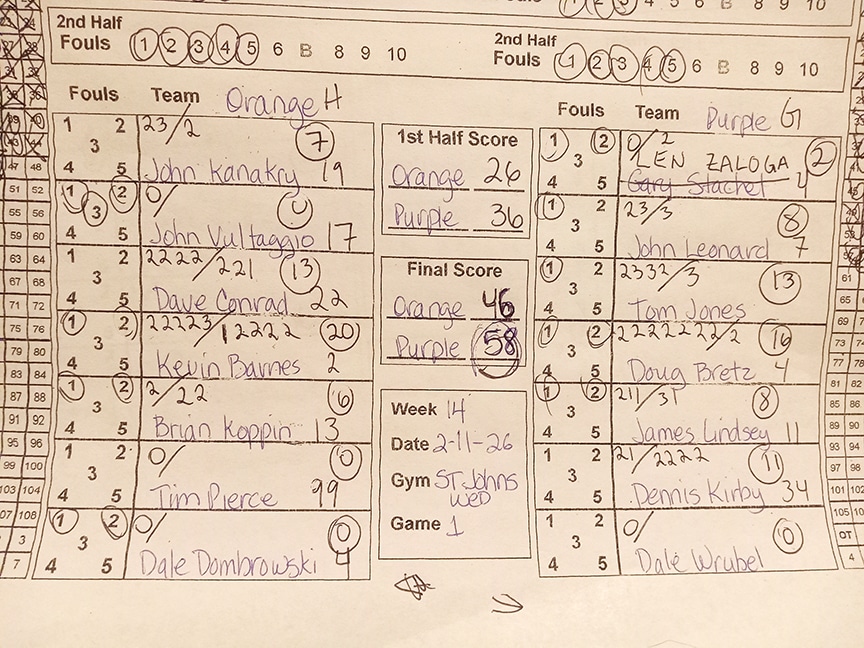 2nd Half
Fouls 1 2 3 4 5 6 B 8 9 10
2nd Half
Fouls 1 2 3 4 5 6 B 8 9 10
Fouls Team Orange H
1 2 3 4 5 23/2 7
John Kanakry 19
1 2 3 4 5 0/ 0
John Vultaggio 17
1 2 3 4 5 2222/221 13
Dave Conrad 22
1 2 3 4 5 22223/12222 20
Kevin Barnes 2
1 2 3 4 5 2/22 6
Brian Koppin 13
1 2 3 4 5 0/ 0
Tim Pierce 99
1 2 3 4 5 0/ 0
Dale Dombrowski 4
1st Half Score
Orange 26
Purple 36
Final Score
Orange 46
Purple 58
Week 14
Date 2-11-26
Gym ST Johns
WED
Game 1
Fouls Team Purple G
1 2 3 4 5 0/2 2
LEN ZALOGA
Gary Stachel 4
1 2 3 4 5 23/3 8
John Leonard 7
1 2 3 4 5 2332/3 13
Tom Jones
1 2 3 4 5 2222222/2 16
Doug Bretz 4
1 2 3 4 5 211/31 8
James Lindsey 11
1 2 3 4 5 21/2222 11
Dennis Kirby 34
1 2 3 4 5 0/ 0
Dale Wrubel
47 48
51 52
55 56
59 60
63 64
67 68
71 72
75 76
79 80
83 84
87 88
91 92
95 96
99 100
103 104
107 108
3
7
61
65
69
73
77
81 82
85 86
89 90
93 94
97 98
101 102
105
OT
4